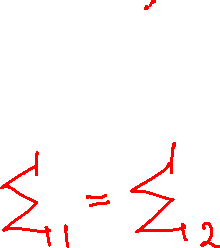 Σ₁ = Σ₂